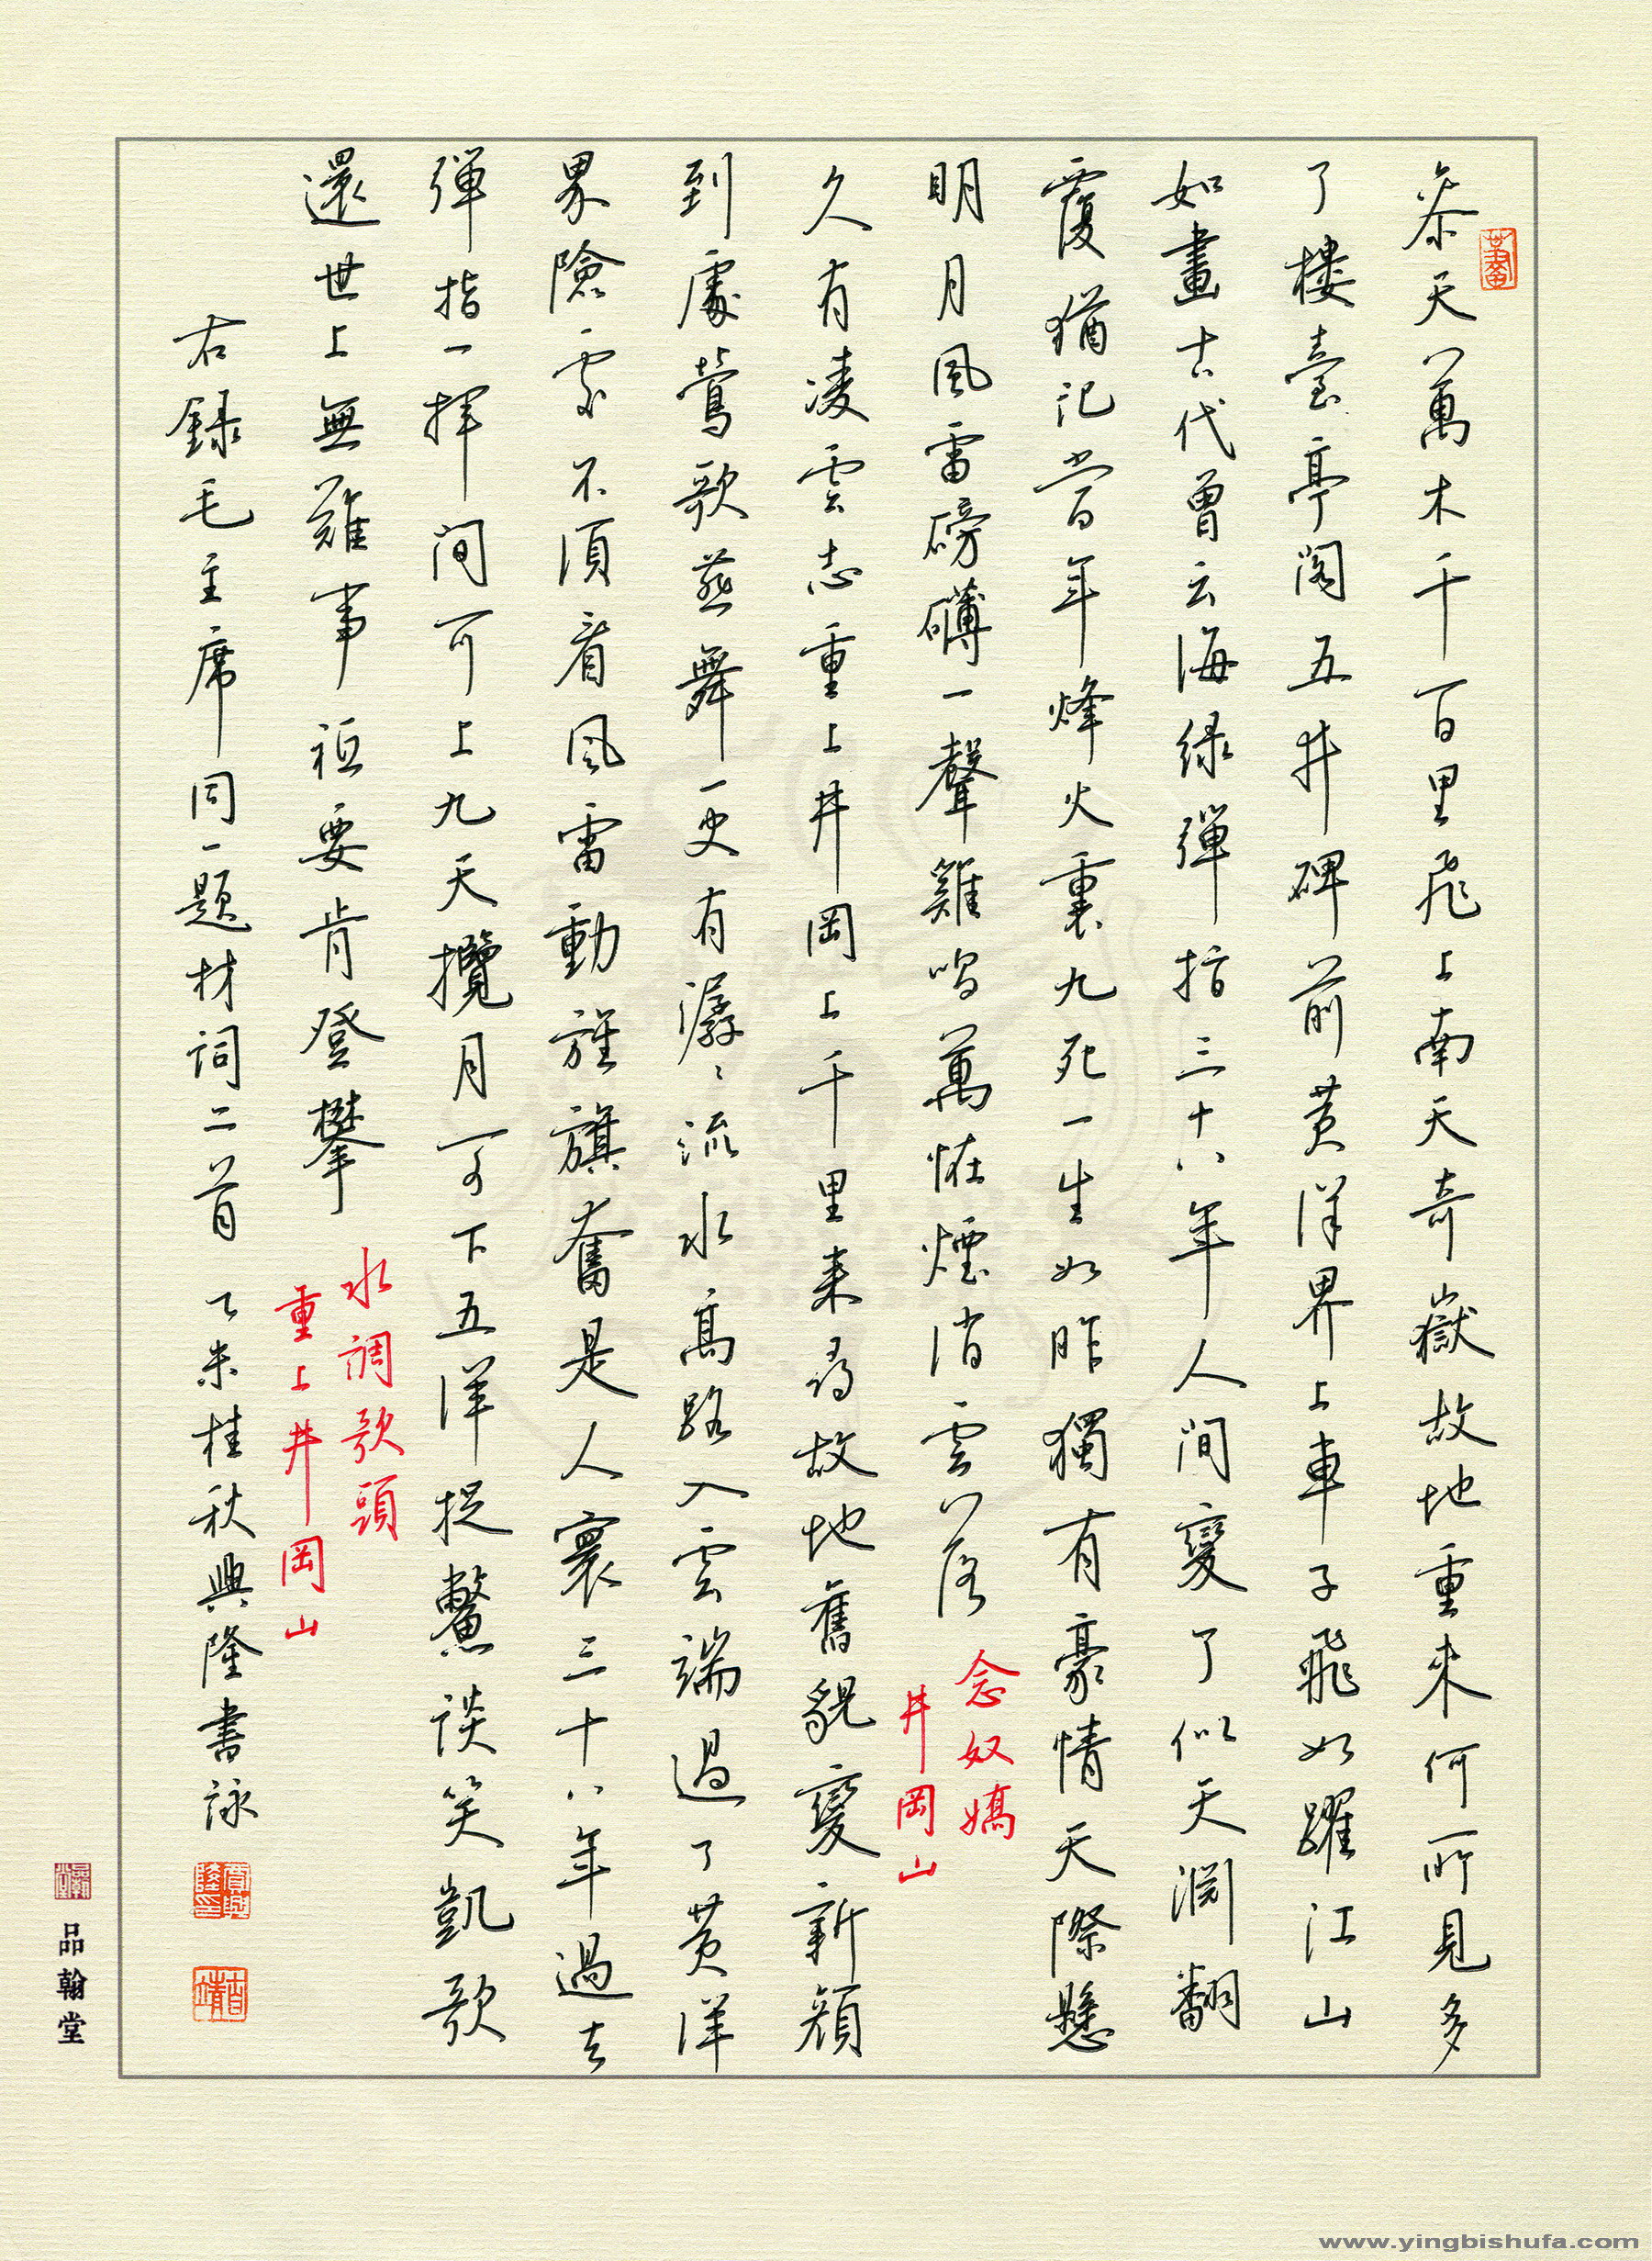 參天萬木千百里飛上南天奇嶽故地重來何所見多
了樓臺亭閣五井碑前黃洋界上車子飛如躍江山
如畫古代曾云海綠彈指三十八年人間變了似天淵翻
覆猶記當年烽火裏九死一生如昨獨有豪情天際懸
明月風雷磅礴一聲雞鳴萬怪煙消雲落
念奴嬌
井岡山
久有凌雲志重上井岡上千里來尋故地舊貌變新顏
到處鶯歌燕舞更有潺〻流水高路入雲端過了黃洋
界險處不須看風雷動旌旗奮是人寰三十八年過去
彈指一揮間可上九天攬月可下五洋捉鱉談笑凱歌
還世上無難事祇要肯登攀
水調歌頭
重上井岡山
右録毛主席同一題材詞二首乙未桂秋興隆書詠
品翰堂
www.yingbishufa.com